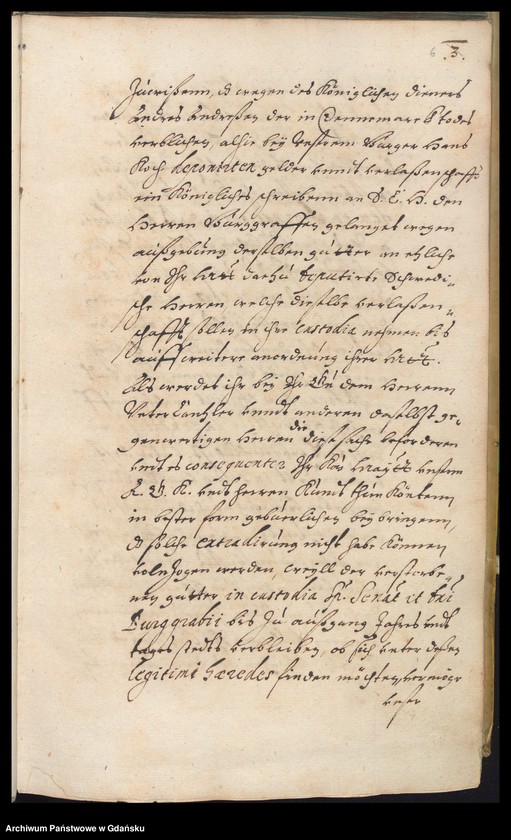 6 .3.
Zuwißenn, d wegen des Königlichen dieners
Andres Andreßen der in Dennemarck todes
verblichen, alhie bey Unsrem Burger Hans
Koch deponirten gelder unnd verlaßenschafft
ein Königliches schreibenn an S. E. H. den
Herren Burggraffen gelanget wegen
außgebung derselben gütter an etzliche
von Ihr Matt dazu deputirte Schwedi-
sche Herren welche dieselbe verlaßen-
schafft sollen in ihre custodia nehmen bis
auff weitere anordnung ihrer Matt.
Als werdet ihr bey dem Herrenn
Unter Cantzler unndt anderen daselbst ge-
genwertigen Herren die diese sache beforderen
und es consequenter Ihr Kön Maytt unserm
E. G. K. und herren Kundt thun Köntenn
in bester form gebürlichen beybringenn,
d solche extradirung nicht habe Können
volnzogen werden, weyll der verstorbe-
nen gütter in custodia Senat et Dni
Burggrabii bis zu außgang Jahres undt
tages stedts verbleiben, ob sich unter deßen
legitimi hæredes finden möchten, vermöge
unser
Archiwum Państwowe w Gdańsku